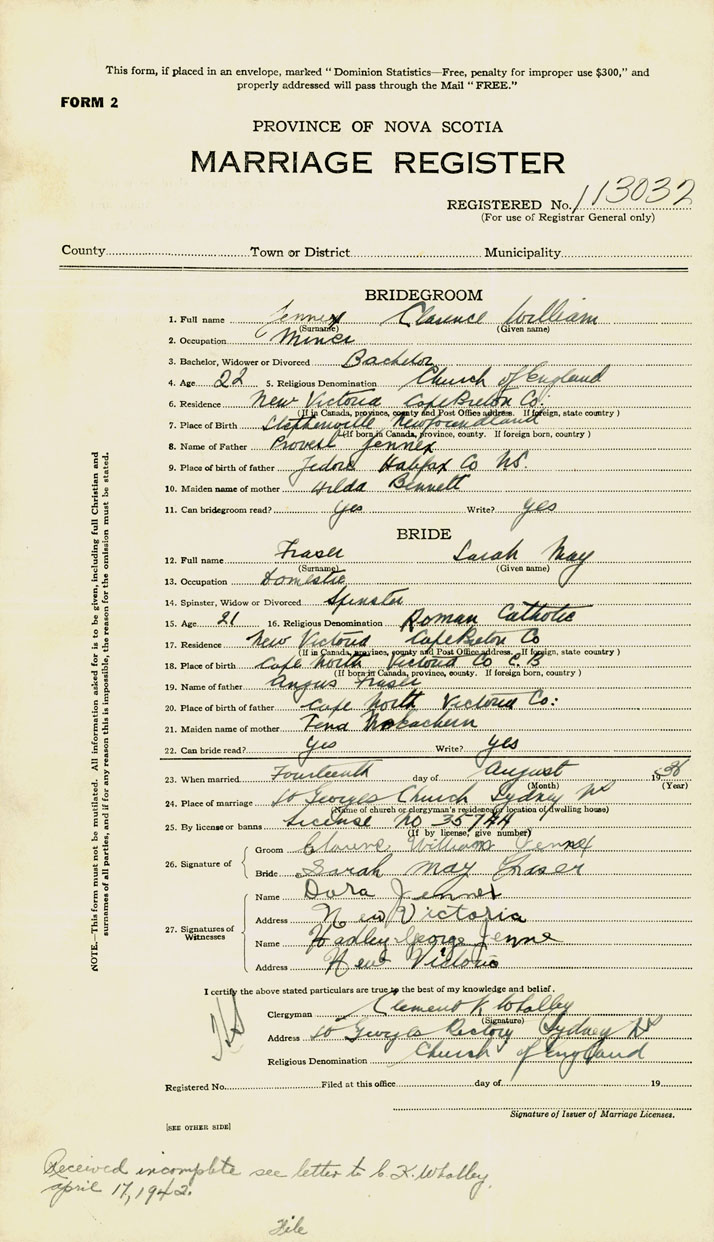 This form, if placed in an envelope, marked "Dominion Statistics—Free, penalty for improper use $300," and
properly addressed will pass through the Mail "FREE."
FORM 2
PROVINCE OF NOVA SCOTIA
MARRIAGE REGISTER
REGISTERED No. 113032
(For use of Registrar General only)
County Town or District Municipality
BRIDEGROOM
1. Full name Jennex Clarence William
(Surname) (Given name)
2. Occupation Miner
3. Bachelor, Widower or Divorced Bachelor
4. Age 22 5. Religious Denomination Church of England
6. Residence New Victoria Cape Breton Co:
(If in Canada, province, county and Post Office address. If foreign, state country)
7. Place of Birth Stephenville Newfoundland
(If born in Canada, province, county. If foreign born, country)
8. Name of Father Jennex
9. Place of birth of father Jedore Halifax Co NS.
10. Maiden name of mother Hilda Bennett
11. Can bridegroom read? Yes Write? Yes
BRIDE
12. Full name Fraser Sarah May
(Surname) (Given name)
13. Occupation Domestic
14. Spinster, Widow or Divorced Spinster
15. Age 21 16. Religious Denomination Roman Catholic
17. Residence New Victoria Cape Breton Co
(If in Canada, province, county and Post Office address. If foreign, state country)
18. Place of birth Cape North Victoria Co C.B
(If born in Canada, province, county. If foreign born, country)
19. Name of father Angus Fraser
20. Place of birth of father Cape North Victoria Co:
21. Maiden name of mother Tena
22. Can bride read? Yes Write? Yes
23. When married Fourteenth day of August 1936
(Month) (Year)
24. Place of marriage St Georges Church Sydney NS
(Name of church or clergyman's residence or location of dwelling house)
25. By license or banns License No
(If by license, give number)
26. Signature of Groom Clarence William Jennex
Bride Sarah May Fraser
27. Signatures of Witnesses Name Dora Jennex
Address New Victoria
Name Hadley George Jenne
Address New Victoria
I certify the above stated particulars are true to the best of my knowledge and belief.
Clergyman Clement K Whalley
(Signature)
Address St Georges Rectory Sydney NS
Religious Denomination Church of England
Registered No. Filed at this office day of 19
Signature of Issuer of Marriage Licenses.
[SEE OTHER SIDE]
Received incomplete see letter to C. K. Whalley.
April 17, 1942.
File
NOTE.—This form must not be mutilated. All information asked for is to be given, including full Christian and
surnames of all parties, and if for any reason this is impossible, the reason for the omission must be stated.